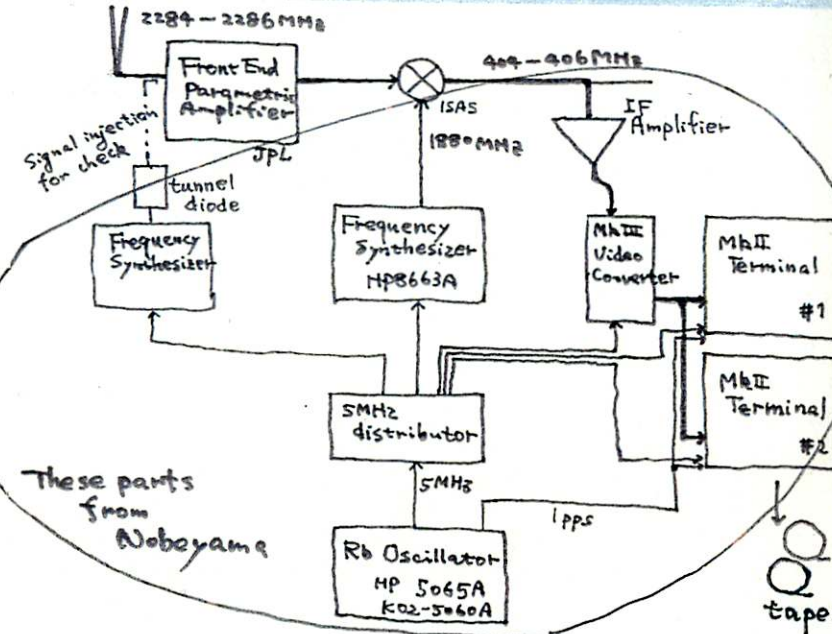 2284-2286MHz
Front End
Parametric
Amplifier
JPL
404-406MHz
ISAS
1880MHz
IF
Amplifier
Signal injection
for check
tunnel
diode
Frequency
Synthesizer
Frequency
Synthesizer
HP8663A
MkIII
Video
Converter
MkII
Terminal
#1
MkII
Terminal
#2
5MHz
distributor
5MHz
1pps
These parts
from
Nobeyama
Rb Oscillator
HP 5065A
K02-5060A
tape